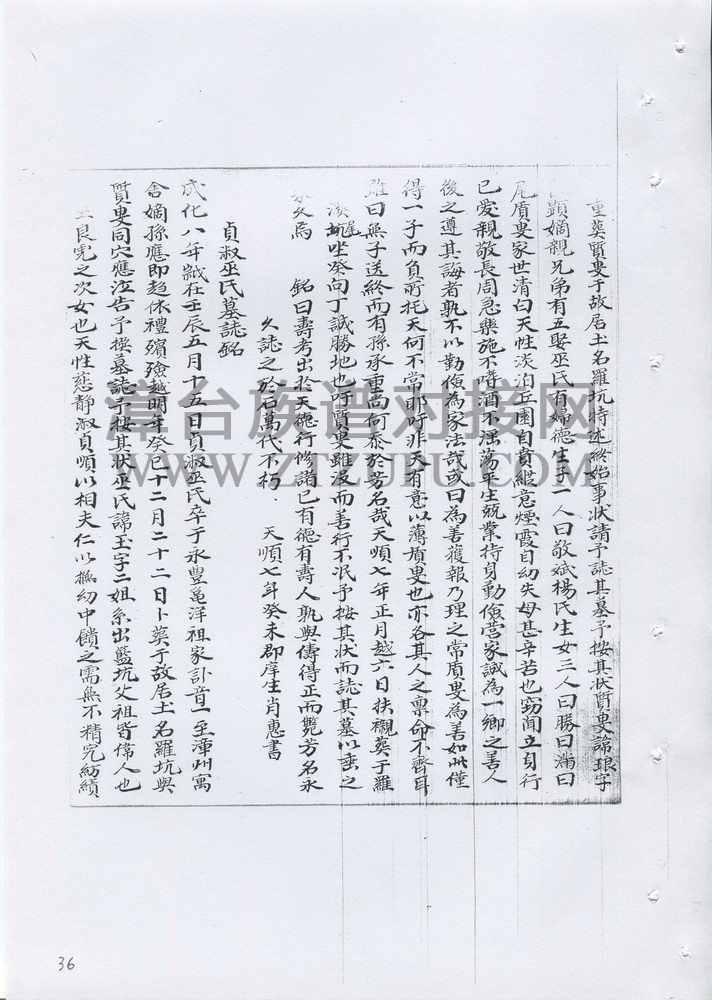 重葬質叟于故居土名羅坑特述終始事狀請予誌其墓予按其狀質叟諱琅字
顕嫡親兄弟有五娶巫氏有婦德生子一人曰敬斌楊氏生女三人曰勝曰滿曰
尾質叟家世清白天性淡泊丘園自賁縱意煙霞自幼失母甚辛苦也竊闻立身行
已愛親敬長周急樂施不嗜酒不遊蕩平生兢業持身勤儉营家誠為一鄉之善人
後之遵其誨者孰不以勤儉為家法哉或曰為善獲報乃理之常質叟為善如此僅
得一子而負所托天何不常耶吁非天有意以薄質叟也亦各其人之禀命不齊耳
雖曰無子送終而有孫承重尚何忝於芳名哉天順七年正月越六日扶櫬葬于羅
溪尾坑坐癸向丁誠勝地也吁質叟雖没而善行不泯予按其狀而誌其墓以垂之
永久焉 銘曰壽考出於天德行修諸已有德有壽人孰與儔得正而斃芳名永
久誌之於石萬代不朽． 天順七年癸未郡庠生肖惠書
貞淑巫氏墓誌銘
成化八年歲在壬辰五月十五日貞淑巫氏卒于永豐龟洋祖家訃音一至漳州寓
舍嫡孫應即趋依禮殯殮越明年癸巳十二月二十二日卜葬于故居土名羅坑與
質叟同穴應泣告予撰墓誌予按其狀巫氏諱玉字二姐系出藍坑父祖皆偉人也
良宪之次女也天性慈静淑貞順以相夫仁以撫幼中饋之需無不精完紡績
清台族谱对接网
WWW.ZTZUPU.COM
36